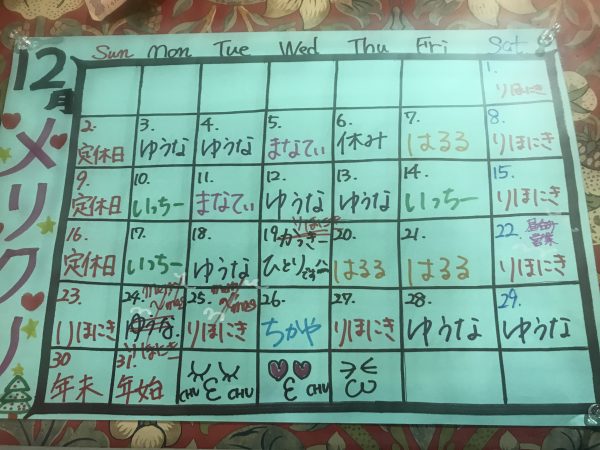 12月
メリクリ
Sun Mon Tue Wed Thu Fri Sat
1. りほにき
2. 定休日
3. ゆうな
4. ゆうな
5. まなてぃ
6. 休み
7. はるる
8. りほにき
9. 定休日
10. いっちー
11. まなてぃ
12. ゆうな
13. ゆうな
14. いっちー
15. りほにき
16. 定休日
17. いっちー
18. ゆうな
19. りほにき
ひとり
20. はるる
21. はるる
22. 営業
りほにき
23. りほにき
24. merry
りほにき
25. merry
りほにき
26. ちかや
27. りほにき
28. ゆうな
29. ゆうな
30 年末
31. 年始
CHU ε CHU
ε CHU
ω